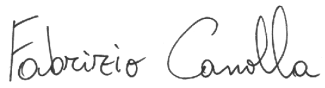 Fabrizio Canolla